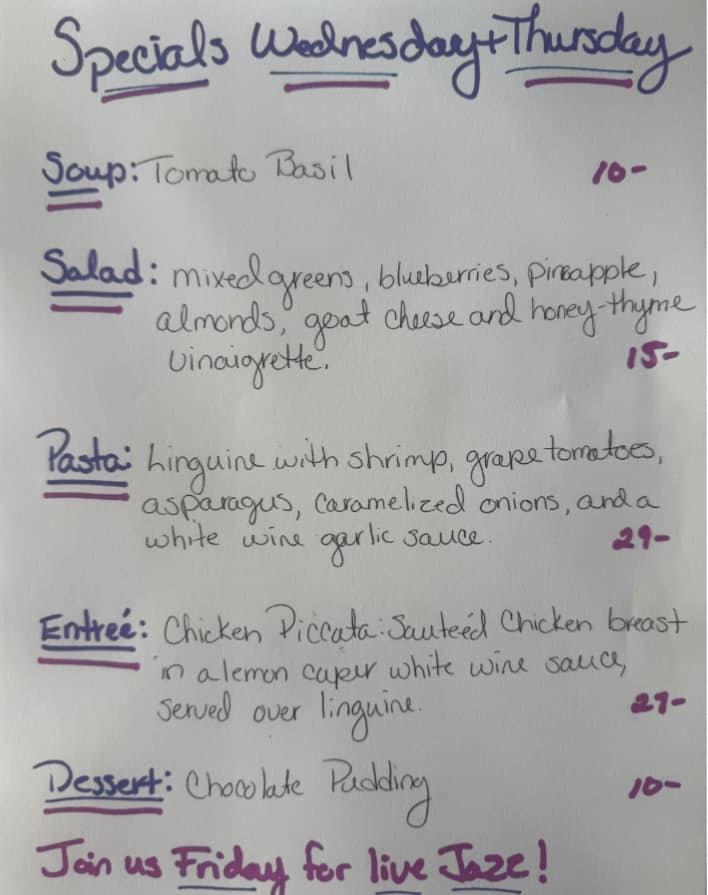 Specials Wednesday + Thursday
Soup: Tomato Basil 10-
Salad: mixed greens, blueberries, pineapple,
almonds, goat cheese and honey-thyme
vinaigrette.
15-
Pasta: Linguine with shrimp, grape tomatoes,
asparagus, caramelized onions, and a
white wine garlic sauce. 29-
Entreé: Chicken Piccata: Sauteéd Chicken breast
in a lemon caper white wine sauce,
served over linguine.
27-
Dessert: Chocolate Pudding 10-
Join us Friday for live Jazz!